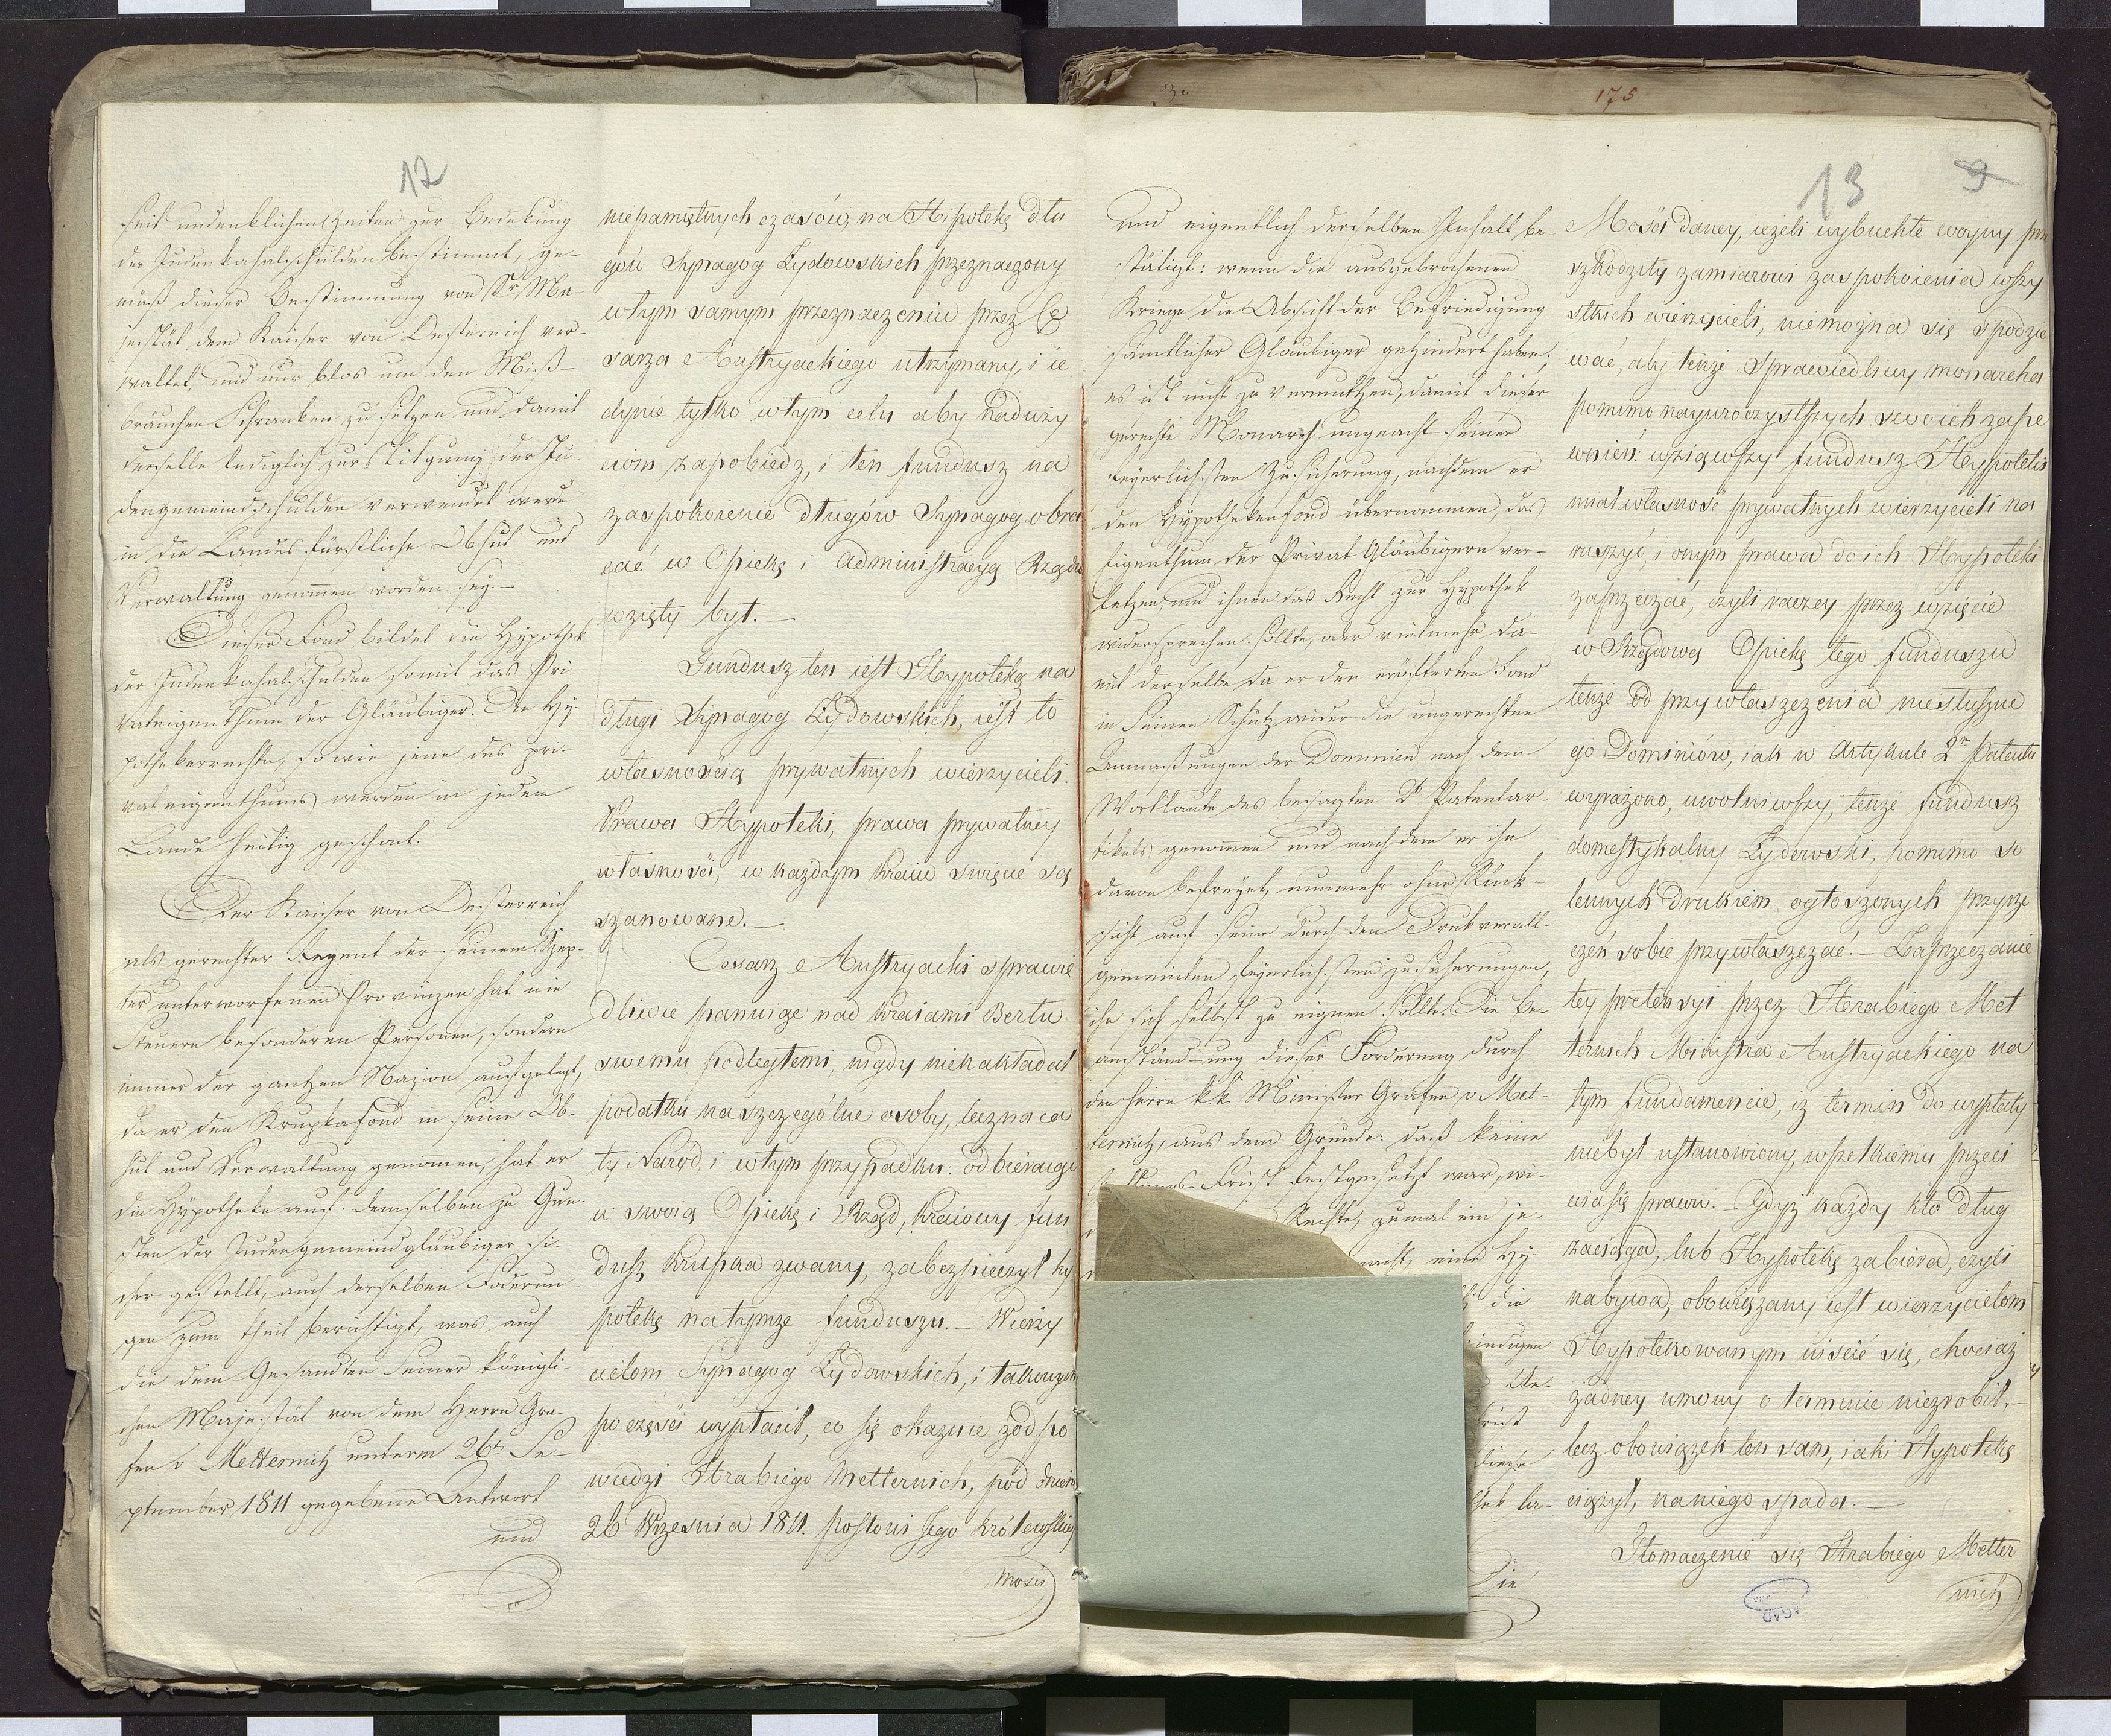 12
seit undenklichen Zeiten zur Bedekung
der Judenkahalschulden bestimmt, ge-
mäß dieser Bestimmung von Sr Ma-
jestät dem Kaiser von Oesterreich ver-
waltet, und nur blos um den Miß-
bräuchen Schranken zu setzen und damit
derselbe lediglich zur Tilgung der Ju-
dengemeindschulden verwendet werde
in die Landesfürstliche Obhut und
Verwaltung genomen worden sey.-
Dieser Fond bildet die Hypothek
der Judenkahalschulden somit das Pri-
vateigenthum der Gläubiger. Die Hy-
pothekarrechte, so wie jene des pri-
vateigenthums werden in jedem
Lande heilig geschont.
Der Kaiser von Oesterreich
als gerechter Regent der seinem Szep-
ter unterworfenen Provinzen hat nie
Steuern besonderen Personen, sondern
immer der gantzen Nazion aufgelegt,
da er den Krupkafond in seine Ob-
hut und Verwaltung genomen, hat er
die Hypotheke auf demselben zu Gun-
sten der Judengemeindgläubiger si-
cher gestellt, auch derselben Forderun-
gen zum theil berichtigt, was auch
die dem Gesandten Seiner Königli-
chen Majestät von dem Herrn Gra-
fen v Metternich unterm 26t Se-
ptember 1811 gegebene Antwort
und
niepamiętnych czasów, na Hipotekę dłu
gów Synagog Żydowskich przeznaczony
wtym samym przeznaczeniu przez Ce
sarza Austryackiego utrzymany, i ie
dynie tylko wtym celu aby naduży
ciom zapobiedz, i ten fundusz na
zaspokoienie długów Synagog obra
cać w Opiekę i Administracyą Rządu
wzięty był.-
Fundusz ten iest Hypoteką na
długi Synagog Żydowskich, iest to
własnością prywatnych wierzycieli.
Prawa Hypoteki, prawa prywatney
własności, w każdym kraiu święcie są
szanowane.-
Cesarz Austryacki sprawie
dliwie panuiąc nad kraiami Berłu
swemu podległemi, nigdy nienakładał
podatku na szczególne osoby, lecz na ca
ły Naród, i wtym przypadku odbieraiąc
w swoią Opiekę i Rząd, kraiowy fun
dusz Krupka zwany, zabezpieczył hy
potekę na tymże funduszu.- Wierzy
cielom Synagog Żydowskich, i takowym
po części wypłacił, co się okazuie z odpo
wiedzi Hrabiego Metternich, pod dniem
26 Września 1811. posłowi Jego Królewskiey
Mości
175
13
9
und eigentlich derselben Inhalt be-
stätigt: wenn die ausgebrochenen
Kriege die Absicht der Befriedigung
sämtlicher Glaubiger gehindert haben;
es ist nicht zu vermuthen, damit dieser
gerechte Monarch ungeacht seiner
feyerlichsten Zusicherung, nachdem er
den Hypothekenfond übernommen, das
Eigenthum der Privat Gläubigern ver-
letzen, und ihnen das Recht zur Hypothek
widersprechen sollte, oder vielmehr da-
mit derselbe da er den erörterten Fond
in Seinen Schutz wider die ungerechten
Anmaßungen der Dominien nach dem
Wortlaute des besagten 2t Patentar-
tikels genomen und nachdem er ihn
davon befreyet, nunmehr ohne Rück-
sicht auf seine durch den Druk verall-
gemeinten feyerlichsten Zusicherungen,
ihn sich selbst zu eignen sollte. Die Be-
anständ-ung dieser Forderung durch
den Herrn kk Minister Grafen v Met-
ternich, aus dem Grunde: daß keine
Frist festgesetzt war, wi-
Rechte, zumal ein je-
macht, eine Hy
die
Die
Mości daney, ieżeli wybuchłe woyny prze
szkodziły zamiarowi zaspokoienia wszy
stkich wierzycieli, niemożna się spodzie
wać, aby tenże sprawiedliwy monarcha
pomimo nayuroczystszych swoich zape
wnień: wziąwszy fundusz Hypoteki
miał własność prywatnych wierzycieli na
ruszyć, i onym prawa do ich Hypoteki
zaprzeczać, czyli raczey przez wzięcie
w Rządową Opiekę tego funduszu
tenże od przywłaszczenia niesłuszne
go Dominiów, iak w Artykule 2m Patentu
wyrażono, uwolniwszy, tenże fundusz
domestykalny Żydowski, pomimo so
lennych drukiem ogłoszonych przyrze
czeń sobie przywłaszczać.- Zaprzeczanie
tey pretensyi przez Hrabiego Met
ternich Ministra Austryackiego na
tym fundamencie, iż termin do wypłaty
niebył ustanowiony, wszelkiemu przeci
wia się prawu. Gdyż każdy kto dług
zaciąga, lub Hypotekę zabiera, czyli
nabywa, obowiązany iest wierzycielom
Hypotekowanym uiścić się, chociaż
żadney umowy o terminie niezrobił,-
lecz obowiązek ten sam, iaki Hypotekę
ciążył, na niego spada.-
Tłomaczenie się Hrabiego Metter
nich
AGAD